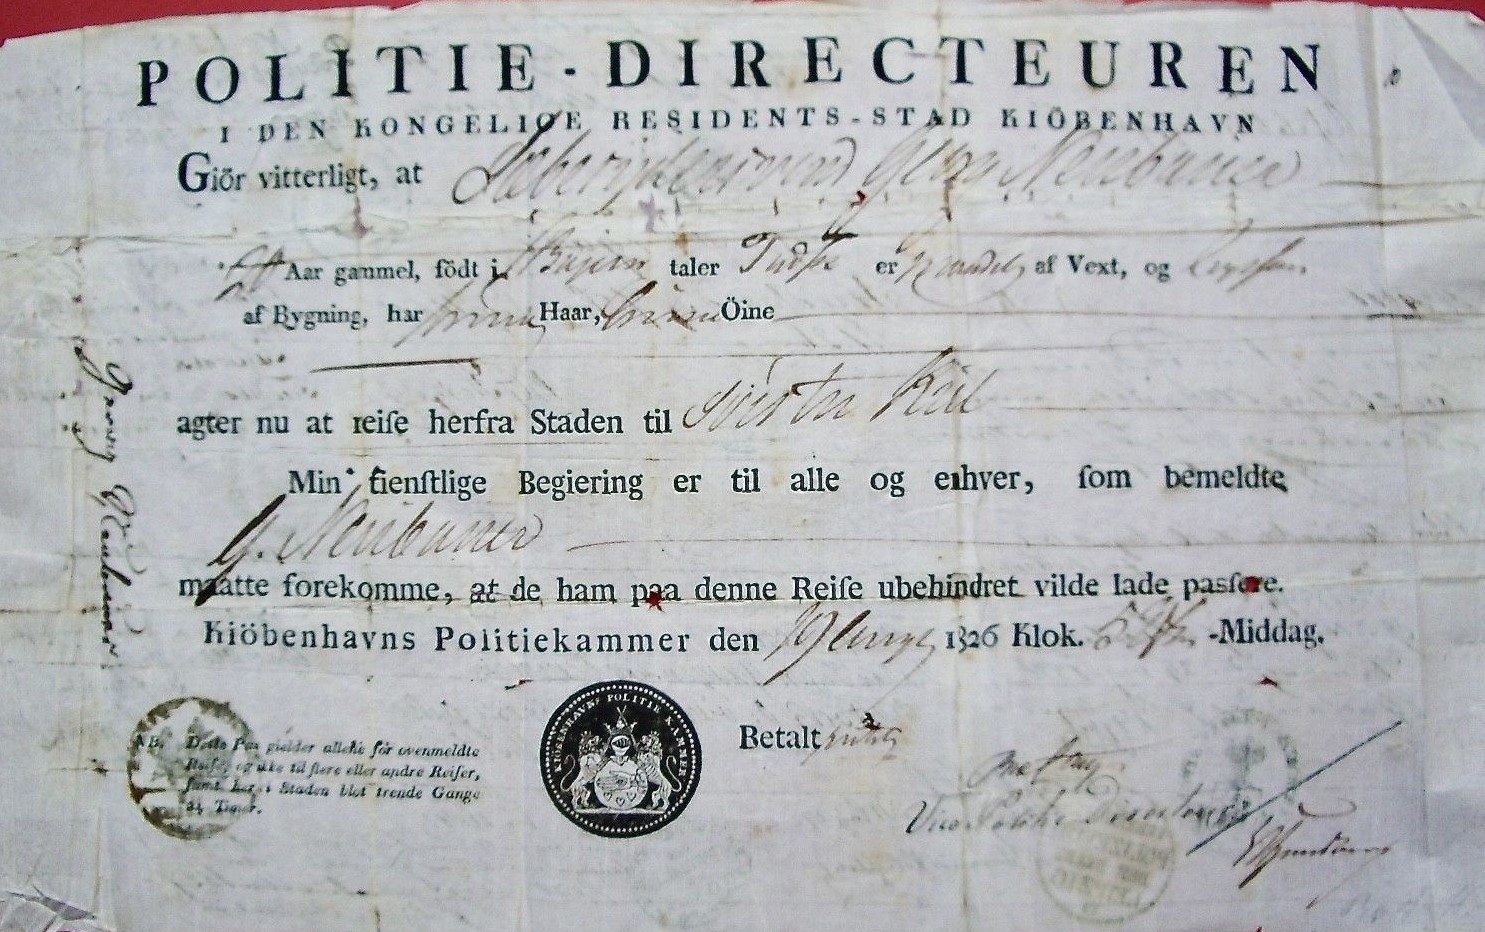 POLITIE - DIRECTEUREN
I DEN KONGELIGE RESIDENTS-STAD KIÖBENHAVN
Giör vitterligt, at Georg Neubauer
Aar gammel, födt i Baiern taler Tydsk er Middel af Vext, og
af Bygning, har brune Haar, brune Öine
agter nu at reiſe herfra Staden til Kiel
Min tienſtlige Begiering er til alle og enhver, ſom bemeldte
G. Neubauer
maatte forekomme, at de ham paa denne Reiſe ubehindret vilde lade paſſere.
Kiöbenhavns Politiekammer den 19 1826 Klok. -Middag.
Georg Neubauer
NB. Dette Pas gielder alleene for ovenmeldte
Reiſe, og ikke til flere eller andre Reiſer,
ſamt her i Staden blot trende Gange
24 Timer.
KIÖBENHAVNS POLITIE KAMMER
Betalt
Vice Politie Directeur